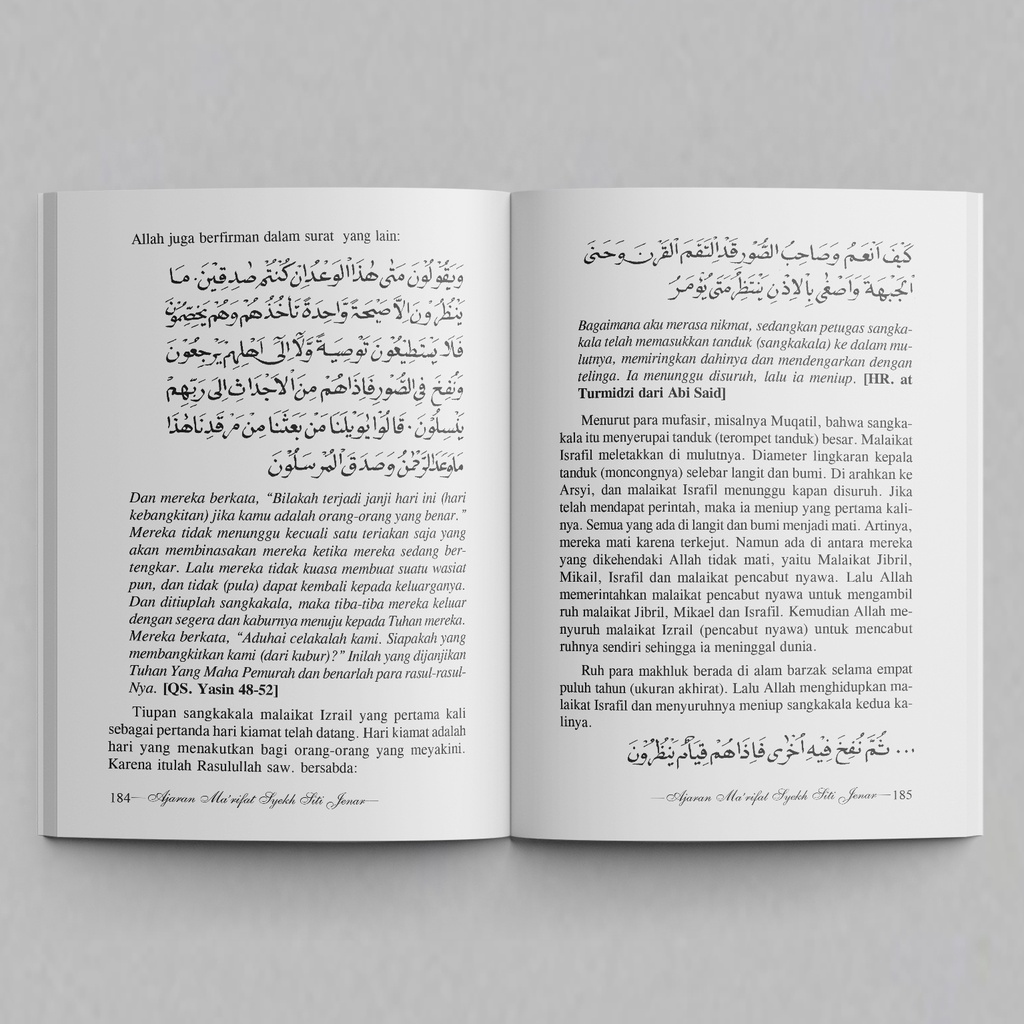 Allah juga berfirman dalam surat yang lain:
وَيَقُوْلُوْنَ مَتٰى هٰذَا الْوَعْدُ اِنْ كُنْتُمْ صٰدِقِيْنَ. مَا
يَنْظُرُوْنَ اِلَّا صَيْحَةً وَّاحِدَةً تَأْخُذُهُمْ وَهُمْ يَخِصِّمُوْنَ
فَلَا يَسْتَطِيْعُوْنَ تَوْصِيَةً وَّلَا اِلٰى اَهْلِهِمْ يَرْجِعُوْنَ
وَنُفِخَ فِي الصُّوْرِ فَاِذَاهُمْ مِنَ الْاَجْدَاثِ اِلٰى رَبِّهِمْ
يَنْسِلُوْنَ. قَالُوْا يٰوَيْلَنَا مَنْ بَعَثَنَا مِنْ مَرْقَدِنَا هٰذَا
مَاوَعَدَ الرَّحْمٰنُ وَصَدَقَ الْمُرْسَلُوْنَ
Dan mereka berkata, “Bilakah terjadi janji hari ini (hari
kebangkitan) jika kamu adalah orang-orang yang benar.”
Mereka tidak menunggu kecuali satu teriakan saja yang
akan membinasakan mereka ketika mereka sedang ber-
tengkar. Lalu mereka tidak kuasa membuat suatu wasiat
pun, dan tidak (pula) dapat kembali kepada keluarganya.
Dan ditiuplah sangkakala, maka tiba-tiba mereka keluar
dengan segera dan kaburnya menuju kepada Tuhan mereka.
Mereka berkata, “Aduhai celakalah kami. Siapakah yang
membangkitkan kami (dari kubur)?” Inilah yang dijanjikan
Tuhan Yang Maha Pemurah dan benarlah para rasul-rasul-
Nya. [QS. Yasin 48-52]
Tiupan sangkakala malaikat Izrail yang pertama kali
sebagai pertanda hari kiamat telah datang. Hari kiamat adalah
hari yang menakutkan bagi orang-orang yang meyakini.
Karena itulah Rasulullah saw. bersabda:
184— Ajaran Ma'rifat Syekh Siti Jenar—
كَيْفَ اَنْعَمُ وَصَاحِبُ الصُّوْرِ قَدِ الْتَقَمَ الْقَرْنَ وَحَنَى
الْجَبْهَةَ وَاَصْغٰى بِالْاِذْنِ يَنْتَظِرُ مَتٰى يُؤْمَرُ
Bagaimana aku merasa nikmat, sedangkan petugas sangka-
kala telah memasukkan tanduk (sangkakala) ke dalam mu-
lutnya, memiringkan dahinya dan mendengarkan dengan
telinga. Ia menunggu disuruh, lalu ia meniup. [HR. at
Turmidzi dari Abi Said]
Menurut para mufasir, misalnya Muqatil, bahwa sangka-
kala itu menyerupai tanduk (terompet tanduk) besar. Malaikat
Israfil meletakkan di mulutnya. Diameter lingkaran kepala
tanduk (moncongnya) selebar langit dan bumi. Di arahkan ke
Arsyi, dan malaikat Israfil menunggu kapan disuruh. Jika
telah mendapat perintah, maka ia meniup yang pertama kali-
nya. Semua yang ada di langit dan bumi menjadi mati. Artinya,
mereka mati karena terkejut. Namun ada di antara mereka
yang dikehendaki Allah tidak mati, yaitu Malaikat Jibril,
Mikail, Israfil dan malaikat pencabut nyawa. Lalu Allah
memerintahkan malaikat pencabut nyawa untuk mengambil
ruh malaikat Jibril, Mikael dan Israfil. Kemudian Allah me-
nyuruh malaikat Izrail (pencabut nyawa) untuk mencabut
ruhnya sendiri sehingga ia meninggal dunia.
Ruh para makhluk berada di alam barzak selama empat
puluh tahun (ukuran akhirat). Lalu Allah menghidupkan ma-
laikat Israfil dan menyuruhnya meniup sangkakala kedua ka-
linya.
... ثُمَّ نُفِخَ فِيْهِ اُخْرٰى فَاِذَاهُمْ قِيَامٌ يَنْظُرُوْنَ
—Ajaran Ma'rifat Syekh Siti Jenar —185